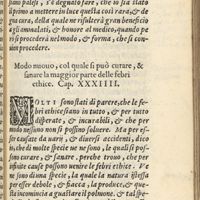 siasi palesi, s'è degnato fare, che io sia stato
primo a mettere in luce questa così rara, & de
gna cura, dalla quale ne risulterà gran beneficio
a gli ammalati, & honore al medico, quando pe
rò si procederà nel modo, & forma, che si con
viene procedere.
Modo nuouo, col quale si può curare, &
sanare la maggior parte delle febri
ethice. Cap. XXXIIII.
MOLTI sono stati di parere, che le fe
bri ethice siano in tutto, & per tutto
disperate, & incurabili, & che per
modo nessuno non si possino soluere. Ma per es
ser causate da uarij, & diuersi accidenti, dico
che di molte specie ue ne sono, le quali si posso
no curare, & sanare, perche trouo, che per
diuerse uie possono uenire le febri ethice. V'e
ne una specie, la quale la natura istessa
per esser debole, & fiacca, la produce, & que
sta incomincia a guastare il polmone, & tal